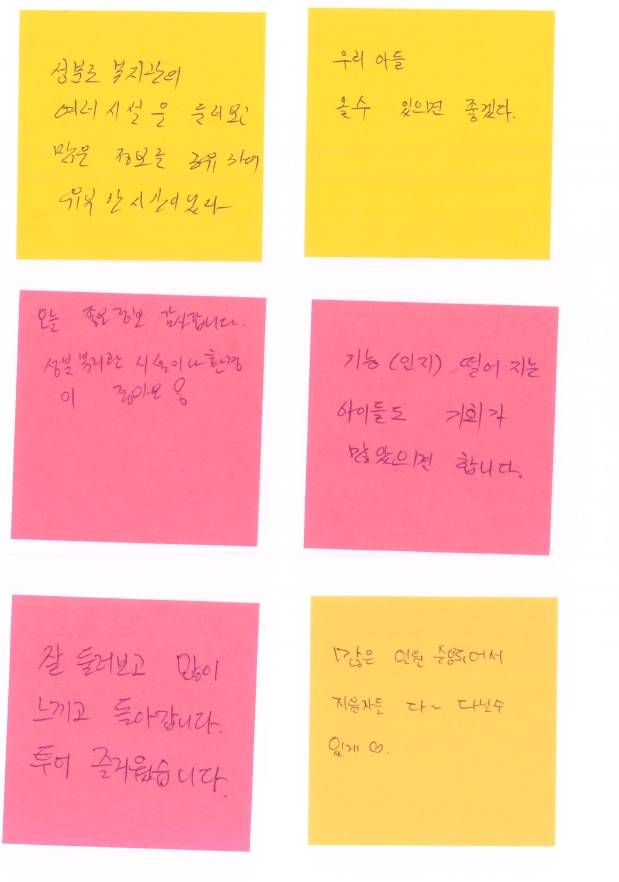 성분도 복지관의
여러시설을 들러보고
많은 정보를 공유하여
유익한 시간이었다
우리 아들
올수 있으면 좋겠다.
오늘 좋은 정보 감사합니다.
성분복지관 시설이나 환경
이 좋아요
기능 (인지) 떨어 지는
아이들도 기회가
많았으면 합니다.
잘 둘러보고 많이
느끼고 돌아갑니다.
투어 즐거웠습니다.
많은 인원 수용되어서
지원자들 다~ 다닐수
있게 ♡.